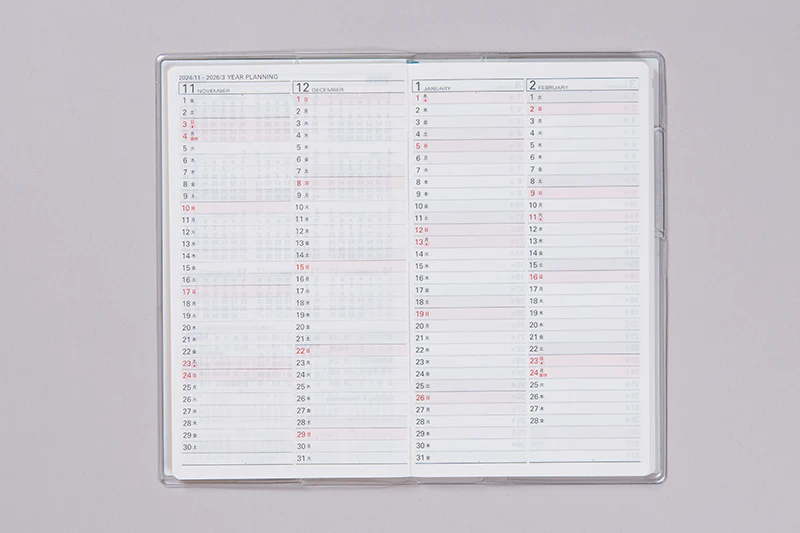 2024/11—2026/3 YEAR PLANNING
11 NOVEMBER
1 金
2 土
3 日
4 月 振休
5 火
6 水
7 木
8 金
9 土
10 日
11 月
12 火
13 水
14 木
15 金
16 土
17 日
18 月
19 火
20 水
21 木
22 金
23 土
24 日
25 月
26 火
27 水
28 木
29 金
30 土
12 DECEMBER
1 日
2 月
3 火
4 水
5 木
6 金
7 土
8 日
9 月
10 火
11 水
12 木
13 金
14 土
15 日
16 月
17 火
18 水
19 木
20 金
21 土
22 日
23 月
24 火
25 水
26 木
27 金
28 土
29 日
30 月
31 火
1 JANUARY
1 水
2 木
3 金
4 土
5 日
6 月
7 火
8 水
9 木
10 金
11 土
12 日
13 月
14 火
15 水
16 木
17 金
18 土
19 日
20 月
21 火
22 水
23 木
24 金
25 土
26 日
27 月
28 火
29 水
30 木
31 金
2 FEBRUARY
1 土
2 日
3 月
4 火
5 水
6 木
7 金
8 土
9 日
10 月
11 火
12 水
13 木
14 金
15 土
16 日
17 月
18 火
19 水
20 木
21 金
22 土
23 日
24 月 振休
25 火
26 水
27 木
28 金